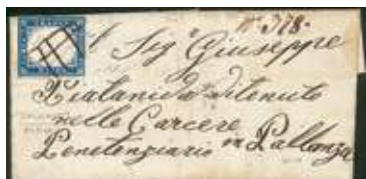 N° 378.
Sig.r Giuseppe
detenuto
nelle Carcere
Penitenziario in Pallanza